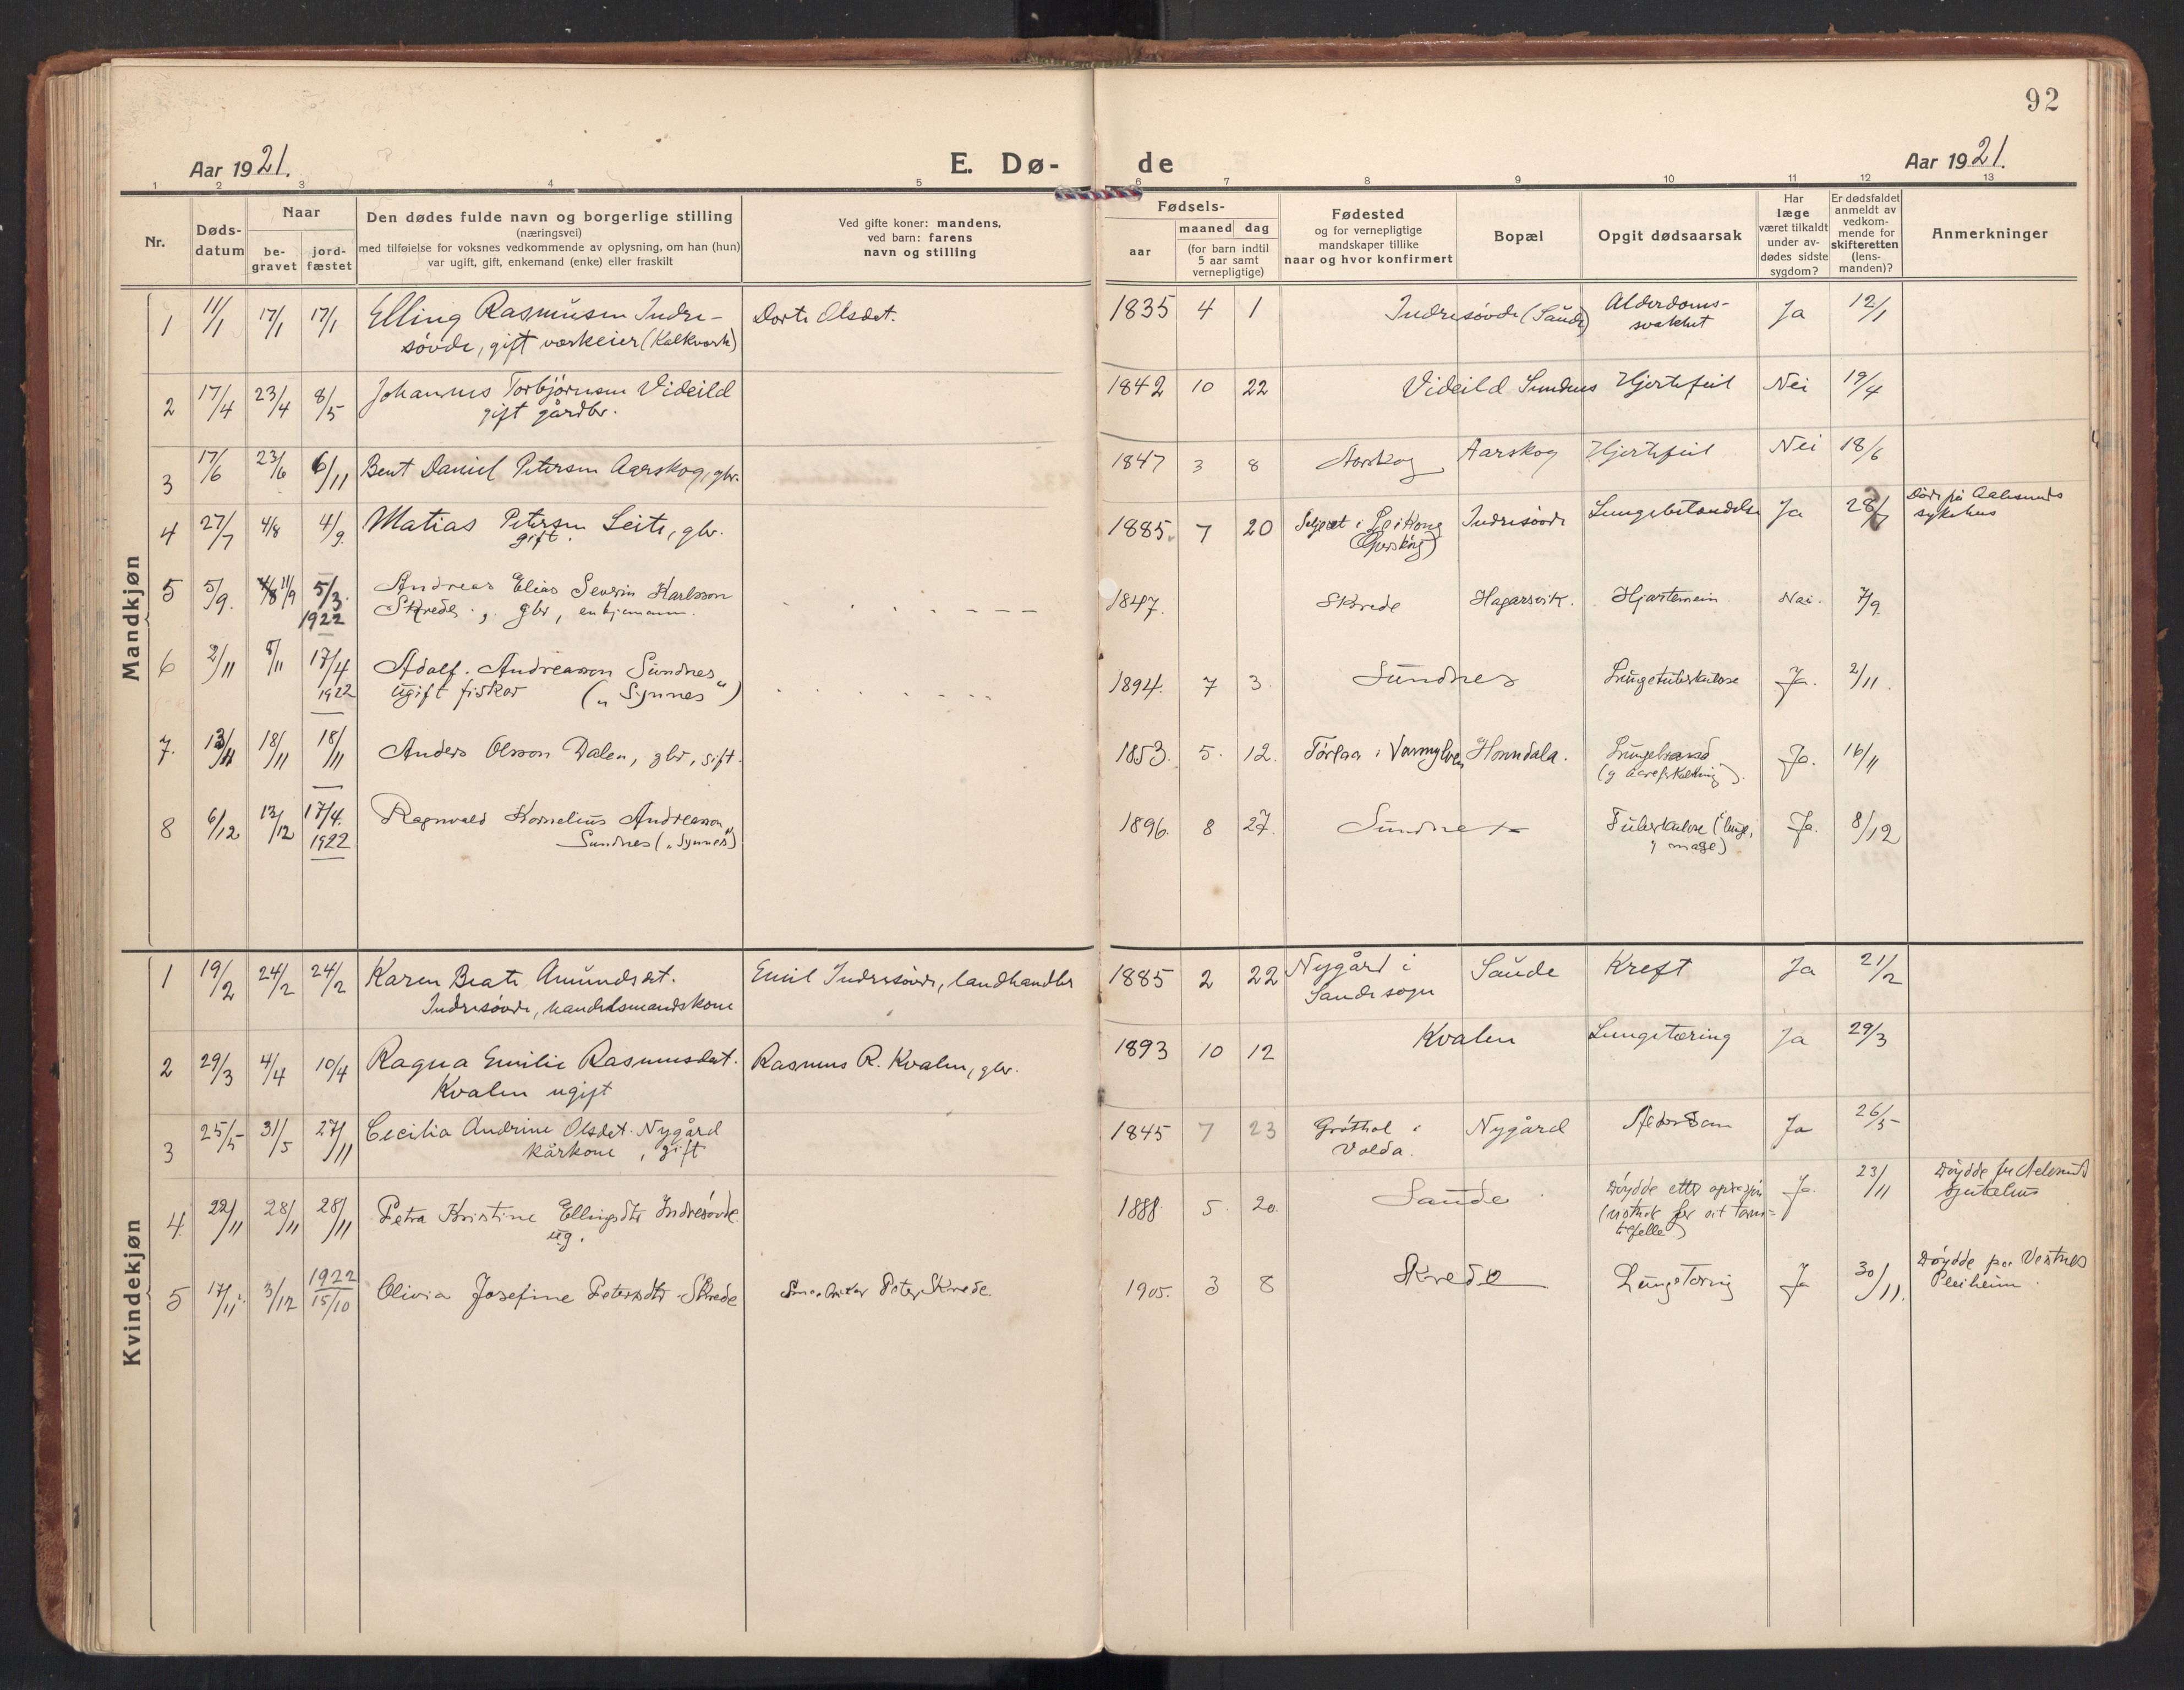 92
Aar 1921.
E. Dø-
de
Aar 1921.
1 2 3 4 5 6 7 8 9 10 11 12 13
Nr.
Døds-
datum
Naar
be-
gravet
jord-
fæstet
Den dødes fulde navn og borgerlige stilling
(næringsvei)
med tilføielse for voksnes vedkommende av oplysning, om han (hun)
var ugift, gift, enkemand (enke) eller fraskilt
Ved gifte koner: mandens,
ved barn: farens
navn og stilling
Fødsels-
aar
maaned dag
(for barn indtil
5 aar samt
vernepligtige)
Fødested
og for vernepligtige
mandskaper tillike
naar og hvor konfirmert
Bopæl
Opgit dødsaarsak
Har
læge
været tilkaldt
under av-
dødes sidste
sygdom?
Er dødsfaldet
anmeldt av
vedkom-
mende for
skifteretten
(lens-
manden)?
Anmerkninger
Mandkjøn
1 11/1 17/1 17/1 Elling Rasmusen Indre- Dorte Olsdet. 1835 4 1 Indresøvde (Saude) Alderdoms- Ja 12/1
søvde, gift verkeier (Kalkverk) svakhet
2 17/4 23/4 8/5 Johannes Torbjørnsen Videild 1842 10 22 Videild Sundnes Hjertefeil Nei 19/4
gift gårdbr.
3 17/6 23/6 6/11 Bent Daniel Petersen Aarskog, gbr. 1847 3 8 Aarskog Aarskog Hjertefeil Nei 18/6
4 27/7 4/8 4/9. Matias Petersen Leite, gbr. 1885. 7 20 i Leikong Indresøvde Lungebetændelse Ja 28/7 Døde på Aalesunds
gift. sykehus
5 5/9. 11/9 5/3. Andreas Elias Severin Karlsson 1847. Skrede Hagarsvik. Hjartemein Nai. 7/9.
1922 Skrede, gbr, enkjemann.
6 2/11 8/11 17/4 Adolf. Andreasson Sundnes 1894. 7 3. Sundnes Lungetuberkulose Ja. 2/11.
1922 ugift fiskar („Synnes“)
7. 13/11 18/11 18/11 Anders Olsson Dalen, gbr, gift. 1853. 5. 12. i Vanylven Honndala. Ja. 16/11
8 6/12 12/12 17/4. Ragnvald Kornelius Andreasson 1896. 8 27. Sundnes Tuberkulose (i lunge, Ja. 8/12
1922 Sundnes („Synnes“) og mage)
Kvindekjøn
1 19/2 24/2 24/2 Karen Beate Amundsdt. Emil Indresøvde, landhandler 1885 2 22 Nygård i Saude Kreft Ja 21/2
Indresøvde, handelsmandskone Sande sogn
2 29/3 4/4 10/4 Ragna Emilie Rasmusdat. Rasmus R. Kvalen, gbr. 1893 10 12 Kvalen Lungetæring Ja 29/3
Kvalen ugift
3 25/5 31/5 27/11 Cecilia Andrine Olsdet. Nygård 1845 7 23 Grøthol i Nygård Alderdom Ja 26/5
kårkone, gift Volda.
4. 22/11 28/11 28/11 Petra Kristine Ellingsdtr Indresøvde 1888. 5. 20. Saude Døydde etter operasjon Ja. 23/11 Døydde på Aalesunds
ug. sjukehus
5 17/11. 3/12 1922 15/10 Olivia Josefine Petersdtr Skrede Peter Skrede. 1905. 3 8 Skrede Lungetæring Ja 30/11. Døydde paa Vestnes
Pleiheim.